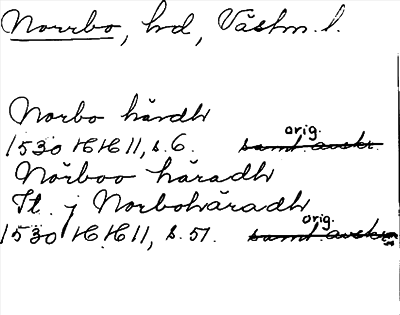 Norrbo, hd, Västm. l.
Norbo härdh
1530 HH 11, s. 6. orig. samt. avskr.
Nörboo häradh
It. j Norbohäradh
1530 HH 11, s. 51. orig. samt. avskr.